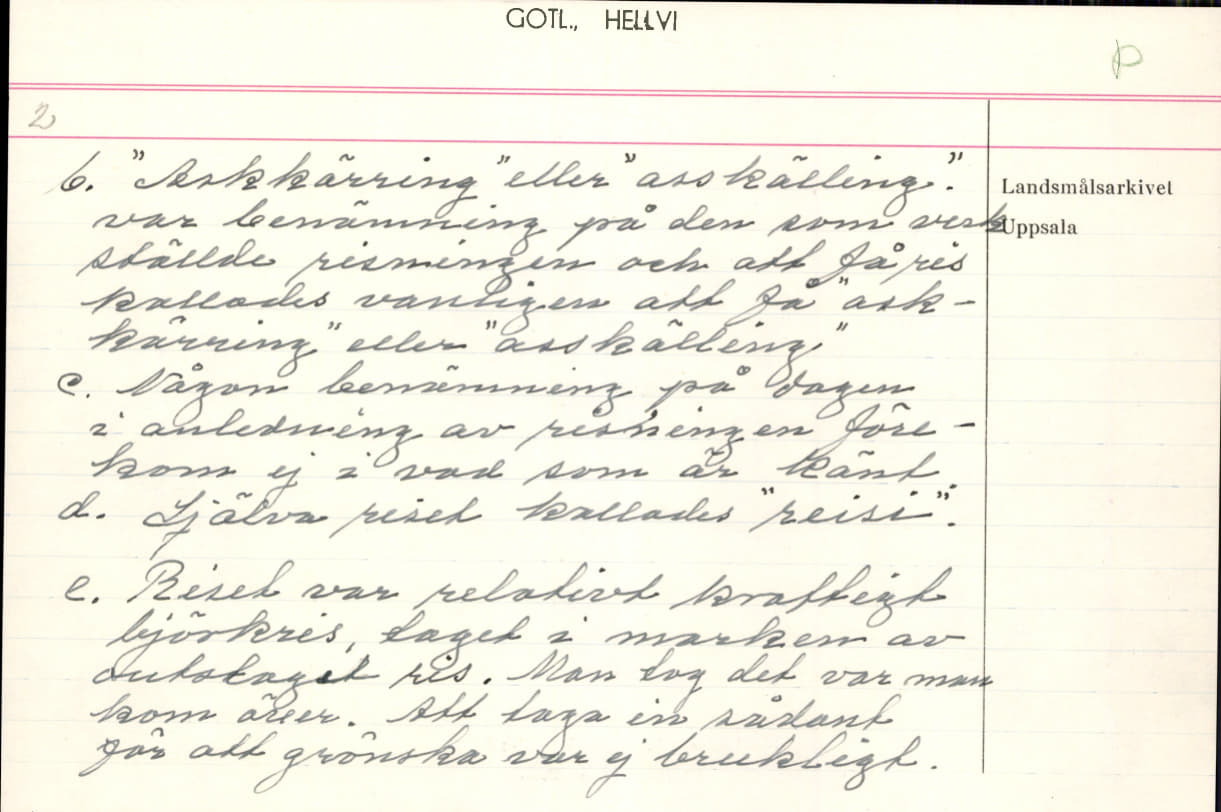 GOTL., HELLVI
P
2
Landsmålsarkivet
Uppsala
b. "Askkärring" eller "asskälling".
var benämning på den som verk
ställde risningen och att få ris
kallades vanligen att få "ask-
kärring" eller "asskälling"
c. Någon benämning på dagen
i anledning av risningen före-
kom ej i vad som är känt.
d. Själva riset kallades "reisi".
e. Riset var relativt kraftigt
björkris, taget i marken av
outslaget ris. Man tog det var man
kom över. Att taga in sådant
för att grönska var ej brukligt.